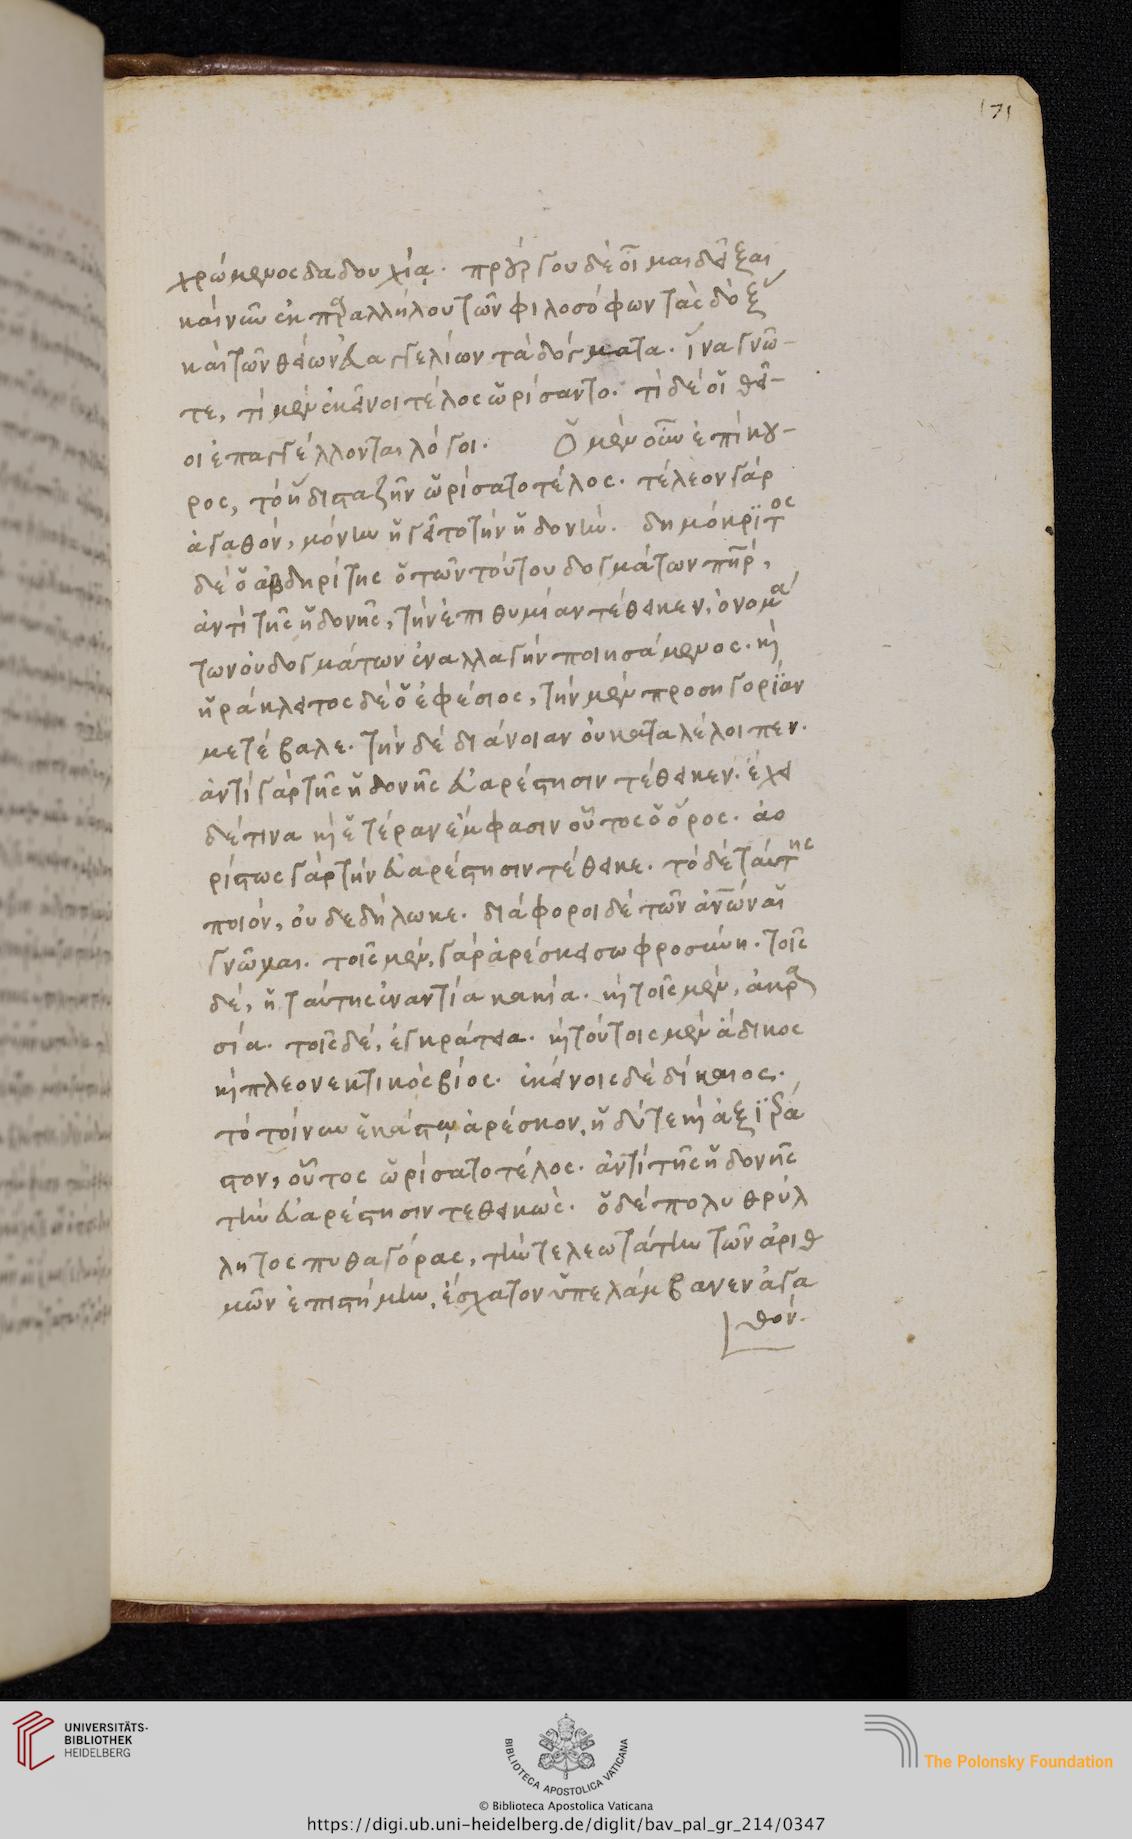 171
χρώμενος δαδουχίᾳ. πρὸ ἔργου δὲ οἶμαι δεῖξαι
καὶ νῦν ἐκ παραλλήλου τῶν φιλοσόφων τὰς δόξας
καὶ τῶν θείων εὐαγγελίων τὰ δόγματα. ἵνα γνῶ-
τε, τί μὲν ἐκεῖνοι τέλος ὡρίσαντο. τί δὲ οἱ θεῖ-
οι ἐπαγγέλλονται λόγοι. Ὁ μὲν οὖν ἐπίκου-
ρος, τὸ ἥδιστα ζῆν ὡρίσατο τέλος. τέλεον γὰρ
ἀγαθὸν, μόνην ἡγεῖτο τὴν ἡδονήν. δημόκριτος
δὲ ὁ ἀβδηρίτης ὁ τῶν τούτου δογμάτων πατήρ,
ἀντὶ τῆς ἡδονῆς, τὴν ἐπιθυμίαν τέθεικεν, ὀνομά
των οὐ δογμάτων ἐναλλαγὴν ποιησάμενος. καὶ
ἡράκλειτος δὲ ὁ ἐφέσιος, τὴν μὲν προσηγορίαν
μετέβαλε. τὴν δὲ διάνοιαν οὐ καταλέλοιπεν.
ἀντὶ γὰρ τῆς ἡδονῆς εὐαρέστησιν τέθεικεν. ἔχει
δέ τινα καὶ ἑτέραν ἔμφασιν οὗτος ὁ ὅρος. ἀο
ρίστως γὰρ τὴν εὐαρέστησιν τέθεικε. τὸ δὲ ταύτης
ποιὸν, οὐ δεδήλωκε. διάφοροι δὲ τῶν ἀνθρώπων αἱ
γνῶμαι. τοῖς μὲν, γὰρ ἀρέσκει σωφροσύνη. τοῖς
δὲ, ἡ ταύτης ἐναντία κακία. καὶ τοῖς μὲν, ἀκρα
σία. τοῖς δὲ, ἐγκράτεια. καὶ τούτοις μὲν ἄδικος
καὶ πλεονεκτικὸς βίος. ἐκείνοις δὲ δίκαιος.
τὸ τοίνυν ἑκάστῳ ἀρέσκον, ἡδύ τε καὶ ἀξιέρα
στον, οὗτος ὡρίσατο τέλος. ἀντὶ τῆς ἡδονῆς
τὴν εὐαρέστησιν τεθεικώς. ὁ δὲ πολυθρύλ
λητος πυθαγόρας, τὴν τελεωτάτην τῶν ἀριθ
μῶν ἐπιστήμην, ἔσχατον ὑπελάμβανεν ἀγα
θόν.
UNIVERSITÄTS-
BIBLIOTHEK
HEIDELBERG
BIBLIOTECA APOSTOLICA VATICANA
The Polonsky Foundation
© Biblioteca Apostolica Vaticana
https://digi.ub.uni-heidelberg.de/diglit/bav_pal_gr_214/0347